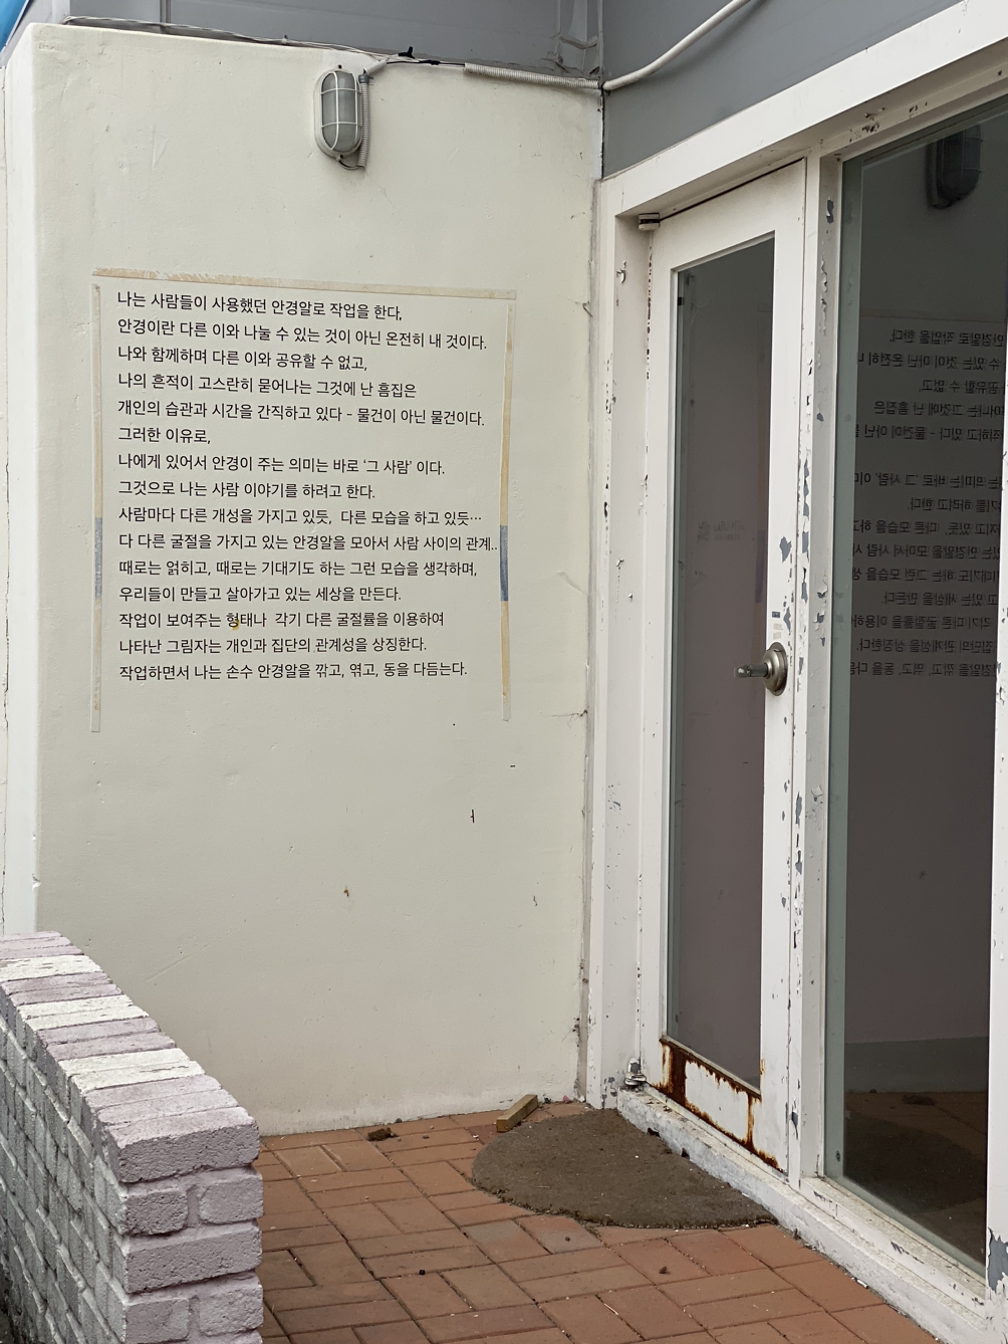 나는 사람들이 사용했던 안경알로 작업을 한다,
안경이란 다른 이와 나눌 수 있는 것이 아닌 온전히 내 것이다.
나와 함께하며 다른 이와 공유할 수 없고,
나의 흔적이 고스란히 묻어나는 그것에 난 흠집은
개인의 습관과 시간을 간직하고 있다 - 물건이 아닌 물건이다.
그러한 이유로,
나에게 있어서 안경이 주는 의미는 바로 '그 사람' 이다.
그것으로 나는 사람 이야기를 하려고 한다.
사람마다 다른 개성을 가지고 있듯, 다른 모습을 하고 있듯…
다 다른 굴절을 가지고 있는 안경알을 모아서 사람 사이의 관계..
때로는 얽히고, 때로는 기대기도 하는 그런 모습을 생각하며,
우리들이 만들고 살아가고 있는 세상을 만든다.
작업이 보여주는 형태나 각기 다른 굴절률을 이용하여
나타난 그림자는 개인과 집단의 관계성을 상징한다.
작업하면서 나는 손수 안경알을 깎고, 엮고, 동을 다듬는다.